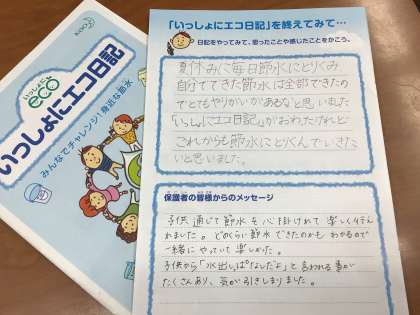 いっしょに
eco
いっしょにエコ日記
みんなでチャレンジ!身近な節水
「いっしょにエコ日記」を終えてみて…
日記をやってみて、思ったことや感じたことをかこう。
夏休みに毎日節水にとりくみ
自分でできた節水は全部できたの
でとてもやりがいがあるなと思いました
「いっしょにエコ日記」がおわたけれど
これからも節水にとりくんでいきた
いと思いました。
保護者の皆様からのメッセージ
子供通じて節水を心掛けれて楽しく行え
れました。どのくらい節水できたのかもわかるので
一緒にやっていて楽しかった。
子供から「水出しっぱなしだよ」と言われる事が
たくさんあり、気が引きしまりました。